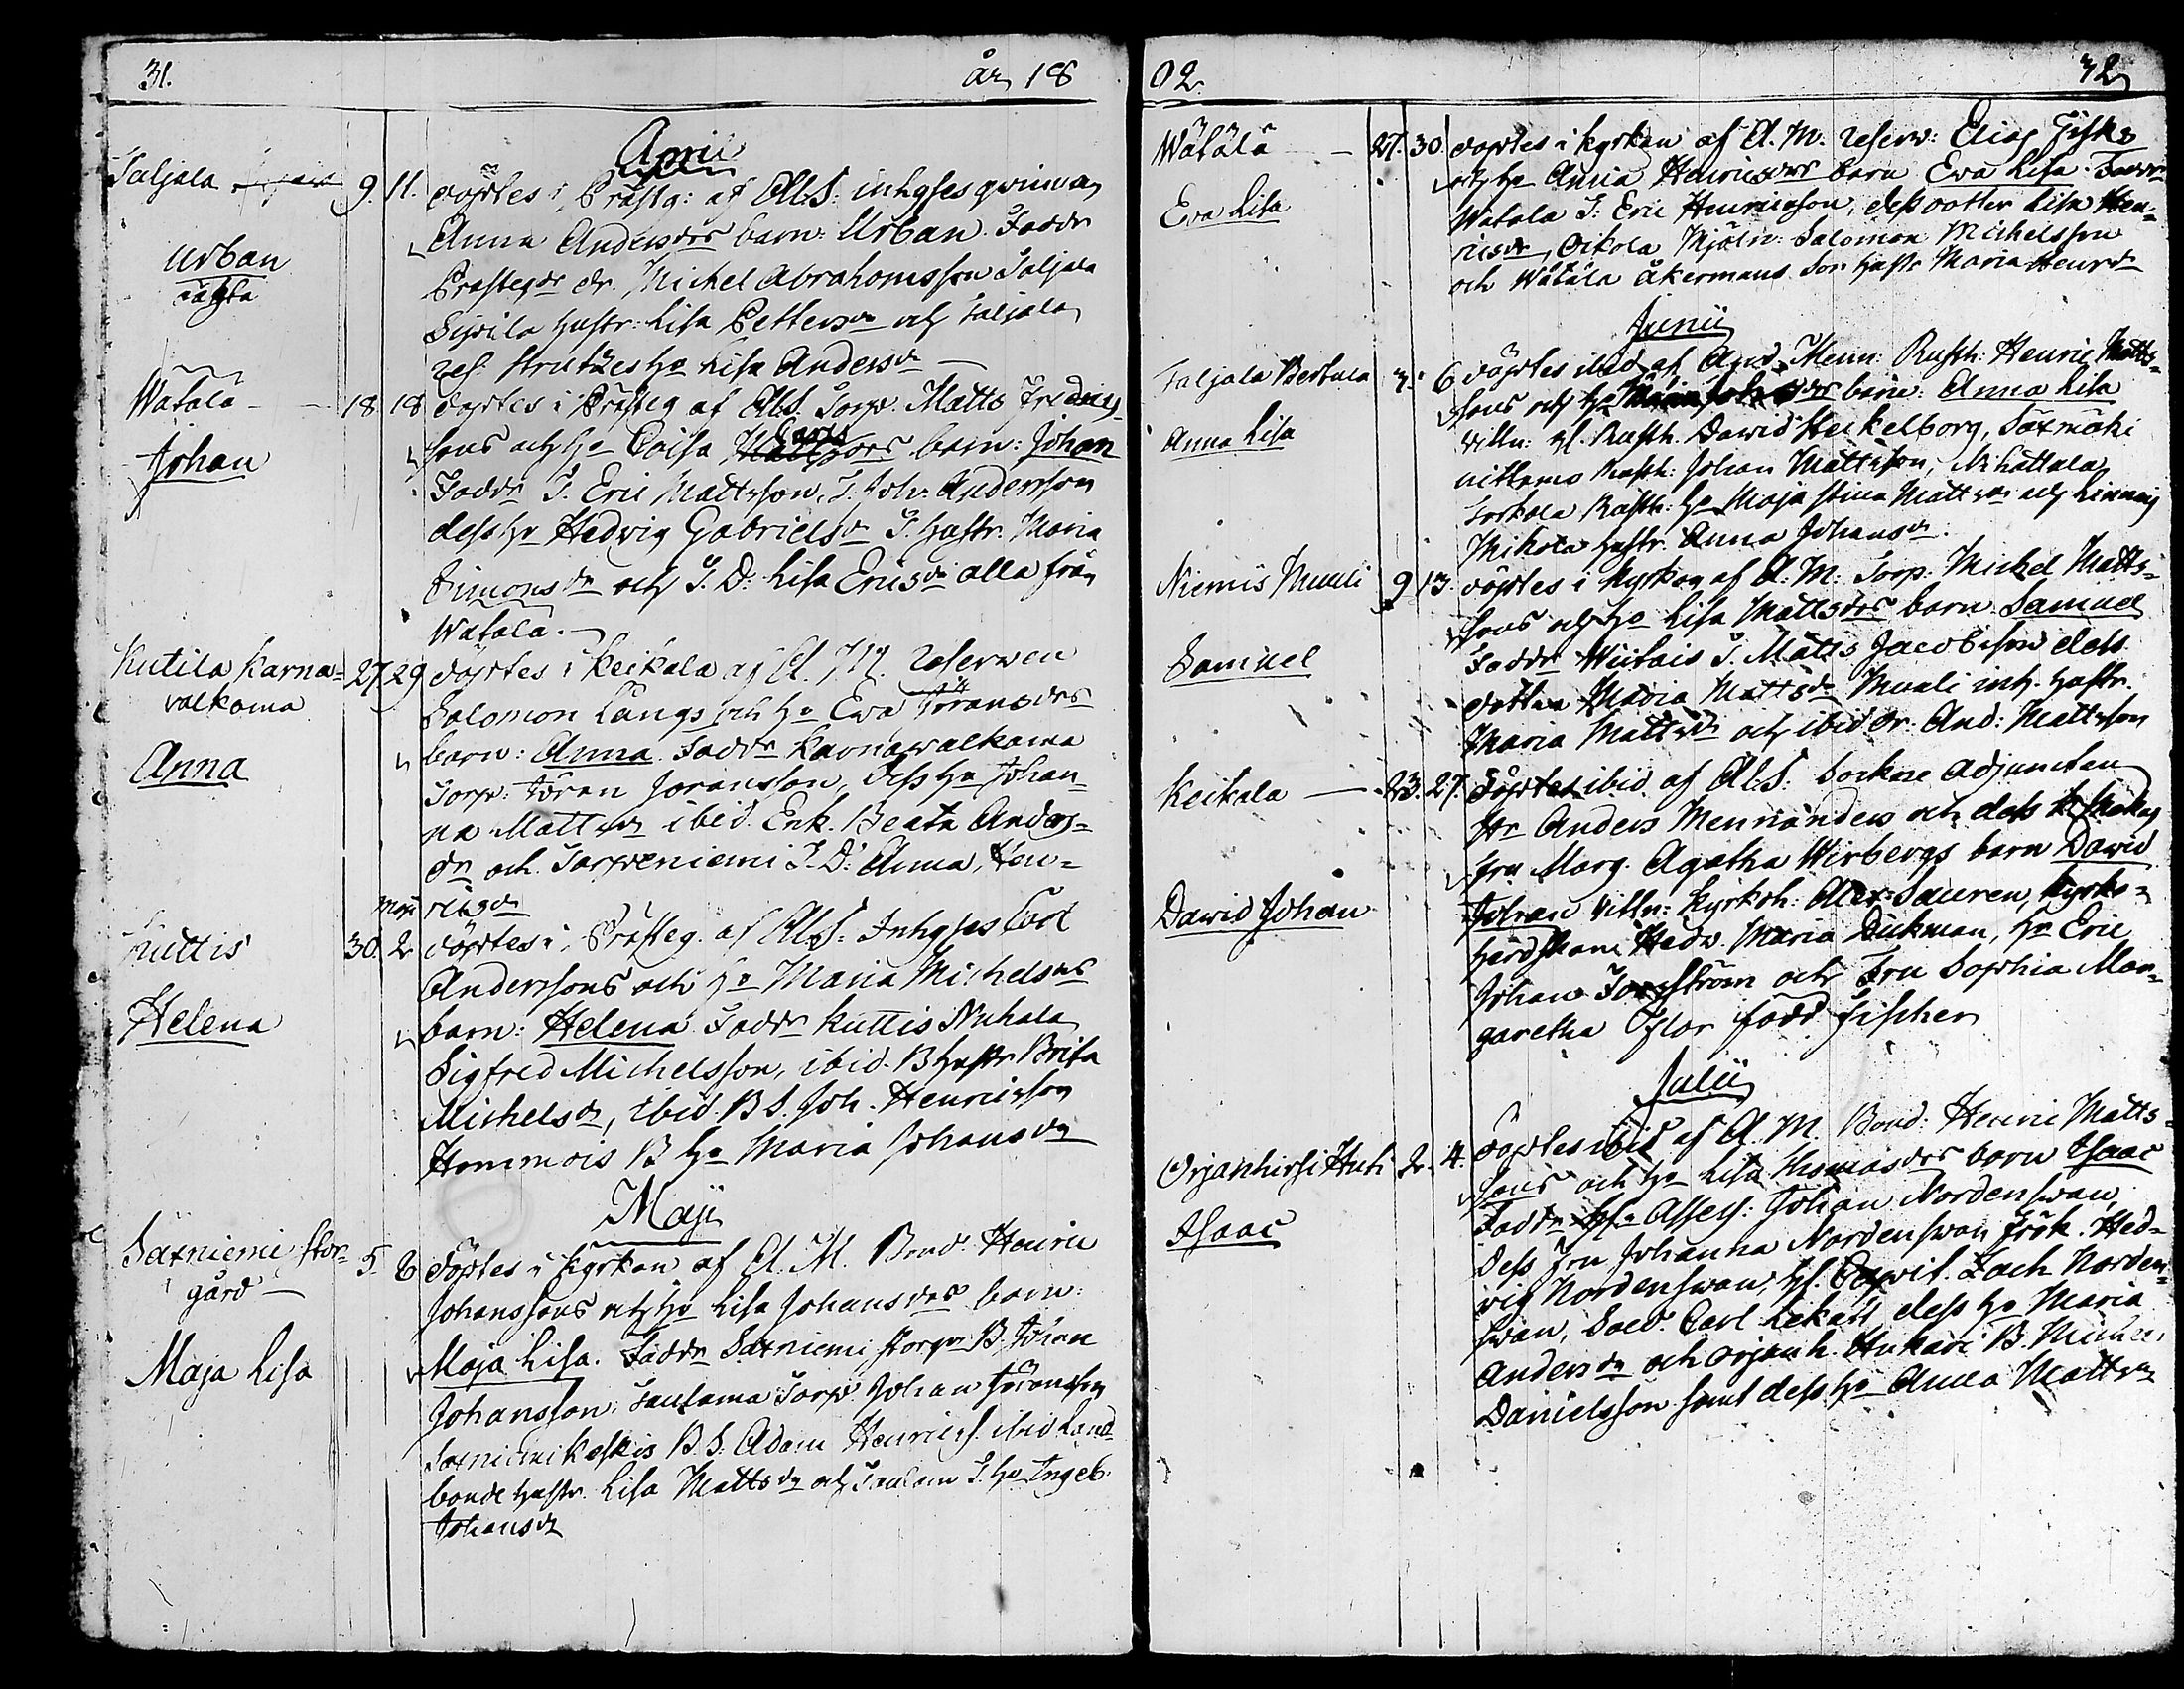 31.
år 18
Aprii
Taljala
9. 11. döptes i Prästg: af Al.S: inhyses qvinnan
Anna Andersdrs barn: Urban. Faddr
Urban
oägta
Prästegds dr. Michel Abrahamsson Taljala
Sipila hustr: Lisa Pettersdr och Taljala
res. Strutzes ho Lisa Andersdr
Watala
18 18 döptes i Prästeg af Al.S. Torp. Matts Fredrics
sons och ho Caisa Carlsdrs barn: Johan
Johan
Faddr T. Eric Mattsson, T. Joh. Andersson
dess ho Hedvig Gabrielsdr T. hustr. Maria
Simonsdr och T.D: Lisa Ericsdr alla från
Watala.
Kutila Karna=
valkama
27 29 döptes i Keikala af A. M. reserven
Salomon Långs och ho Eva Göransdrs
barn: Anna. Faddr Karnavalkama
Anna
Torp: Göran Göransson, dess ho Johan=
na Mattsdr ibid. Enk. Beata Anders=
dr och Sarpeniemi T.D: Anna Hen=
ricsdr
Maji
Kuttis
30. 2 döptes i Prästeg. af Al.S: Inhyses Carl
Anderssons och ho Maria Michelsdrs
Helena
barn: Helena Faddr Kuttis Nuhala
Sigfred Michelsson, ibid. B hustr Brita
Michelsdr, ibid. B S. Joh. Henricsson
Hommois B ho Maria Johansdr
Maji
Saxniemi stor=
gård
5. 6 döptes i Kyrkan af A. M. Bond. Henric
Johanssons och ho Lisa Johansdrs barn:
Maja Lisa
Maja Lisa. Faddr Saxniemi storg: B. Johan
Johansson, Sautama Torp: Johan Göransson
Saxniemi Keskis B.S: Adam Henricss. ibid Land
bonde hustr. Lisa Mattsdr och Sautam T. ho Ingeb.
Johansdr
02.
32
Wätälä
27. 30. döptes i Kyrkan af A. M. reserv: Elias Fisks
och ho Anna Henricsdrs barn Eva Lisa. Faddr
Eva Lisa
Watala T: Eric Henricsson, dess dotter Lisa Hen=
ricsdr, Oikola Mjöln: Salomon Michelsson
och Wätälä Åkermans Son hustr Maria Henrsdr
Junii
Taljala Bertula
3. 6 döptes ibid af And. Menn: Rusth: Henric Matts=
sons och ho barn: Anna Lisa
Anna Lisa
vittn: hl. Rusth. David Heikelborg, Saxmäki
nittamo Rusth: Johan Mattsson, Nihattala
Torkola Rusth: ho Maja Stina Mattsdr och
Mikola hustr. Anna Johansdr.
Niemis Muuli
9 13. döptes i Kyrkan af A: M: Torp: Michel Matts=
sons och ho Lisa Mattsdrs barn Samuel
Samuel
Faddr Wiitais T. Matts Jacobsson dess
dotter Maria Mattsdr Muuli inh. hustr.
Maria Mattsdr och ibid dr. And: Mattsson
Keikala
23. 27. döptes ibid af Al.S. Sockne Adjuncten
Hr Anders Mennanders och dess k Maka
Fru Marg. Agatha Wirbergs barn David
David Johan
Johan Vittn: Kyrkoh: Alex: Lauren, Kyrko=
herdskan Hedv. Maria Dickman, Hr Eric
Johan Forsström och Fru Sophia Mar=
garetha Flor född Fischer
Julii
Orjanhirsi Huti
2. 4. döptes ibid af A. M. Bond: Henric Matts=
sons och ho Lisa Thomasdrs barn Isaac
Isaac
Faddr Assess: Johan Nordenswan,
dess Fru Johanna Nordenswan Frök. Hed=
vig Nordenswan, Zach Norden=
swan, Carl Lekatt, dess ho Maria
Andersdr och Orjanh. Hukari B. Michel
Danielsson samt dess ho Anna Mattsdr